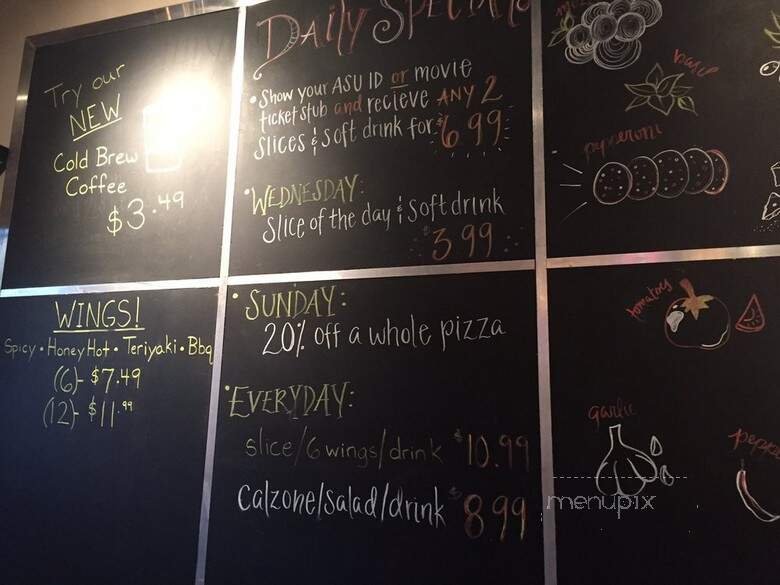 Try our
NEW
Cold Brew
Coffee
$3.49
WINGS!
Spicy • Honey Hot • Teriyaki • Bbq
(6)- $7.49
(12)- $11.99
DAILY SPECIALS
• Show your ASU ID or movie
ticket stub and recieve ANY 2
slices & soft drink for $6.99
• WEDNESDAY:
Slice of the day & soft drink
$3.99
• SUNDAY:
20% off a whole pizza
• EVERYDAY:
slice/6 wings/drink $10.99
calzone/salad/drink $8.99
basil
pepperoni
tomatoes
garlic
menupix